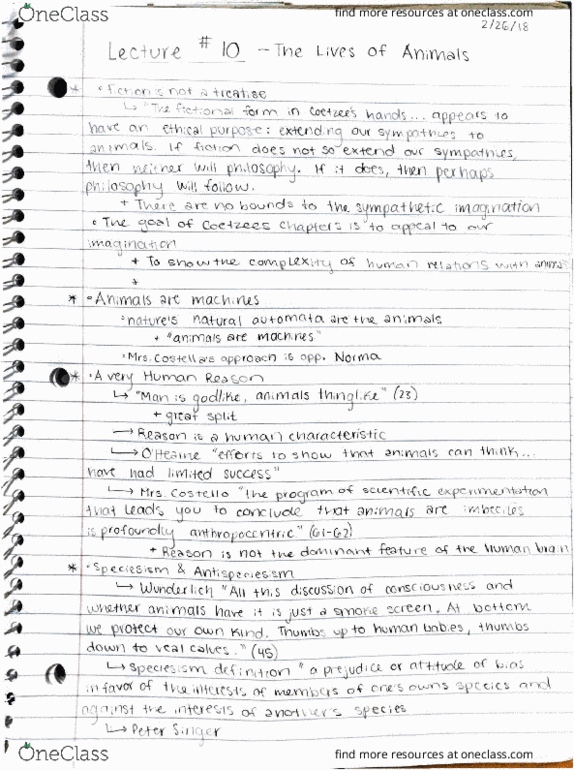 OneClass
find more resources at oneclass.com
2/26/18
Lecture #10 - The Lives of Animals
* • Fiction is not a treatise
↳ "The fictional form in Coetzee's hands... appears to
have an ethical purpose: extending our sympathies to
animals. If fiction does not so extend our sympathies,
then neither will philosophy. If it does, then perhaps
philosophy will follow.
+ There are no bounds to the sympathetic imagination
• The goal of Coetzees chapters is to appeal to our
imagination
+ To show the complexity of human relations with animals
+
* • Animals are machines
• nature's natural automata are the animals
+ "animals are machines"
• Mrs. Costella's approach is opp. Norma
* • A very Human Reason
↳ "Man is godlike, animals thinglike" (23)
+ great split
→ Reason is a human characteristic
↳ O'Hearne "efforts to show that animals can think...
have had limited success"
↳ Mrs. Costello "the program of scientific experimentation
that leads you to conclude that animals are imbeciles
is profoundly anthropocentric" (61-62)
+ Reason is not the dominant feature of the human brain
* • Speciesism & Antispeciesism
↳ Wunderlich "All this discussion of consciousness and
whether animals have it is just a smoke screen. At bottom
we protect our own kind. Thumbs up to human babies, thumbs
down to veal calves." (45)
↳ Speciesism definition "a prejudice or attitude of bias
in favor of the interests of members of one's owns species and
against the interests of another's species
↳ Peter Singer
OneClass
find more resources at oneclass.com